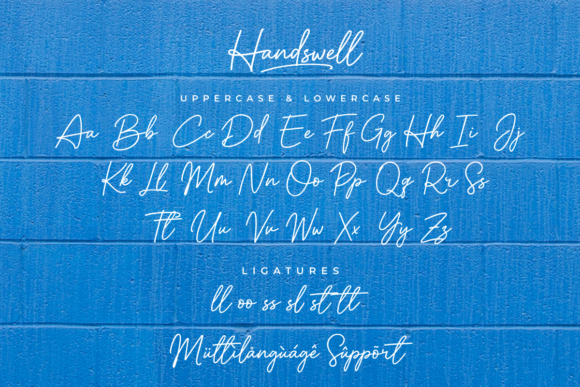 Handswell
UPPERCASE & LOWERCASE
Aa Bb Cc Dd Ee Ff Gg Hh Ii Jj
Kk Ll Mm Nn Oo Pp Qq Rr Ss
Tt Uu Vv Ww Xx Yy Zz
LIGATURES
ll oo ss sl st tt
Mültìlàngùágê Sûppõrt